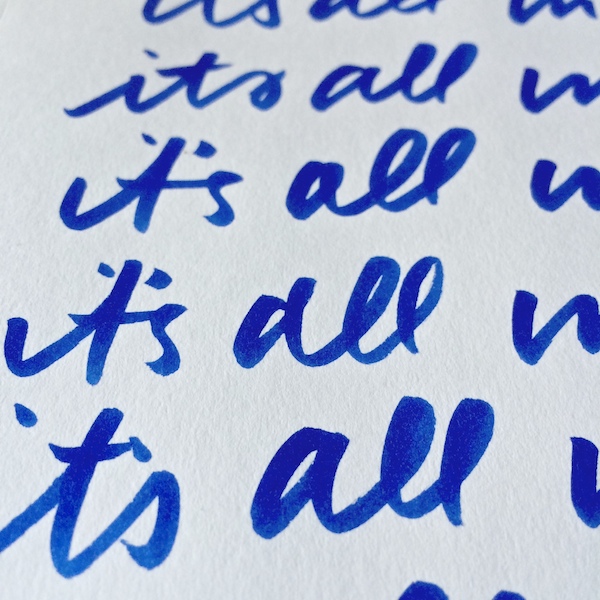 it's all
its all
it's all
it's all
it's all